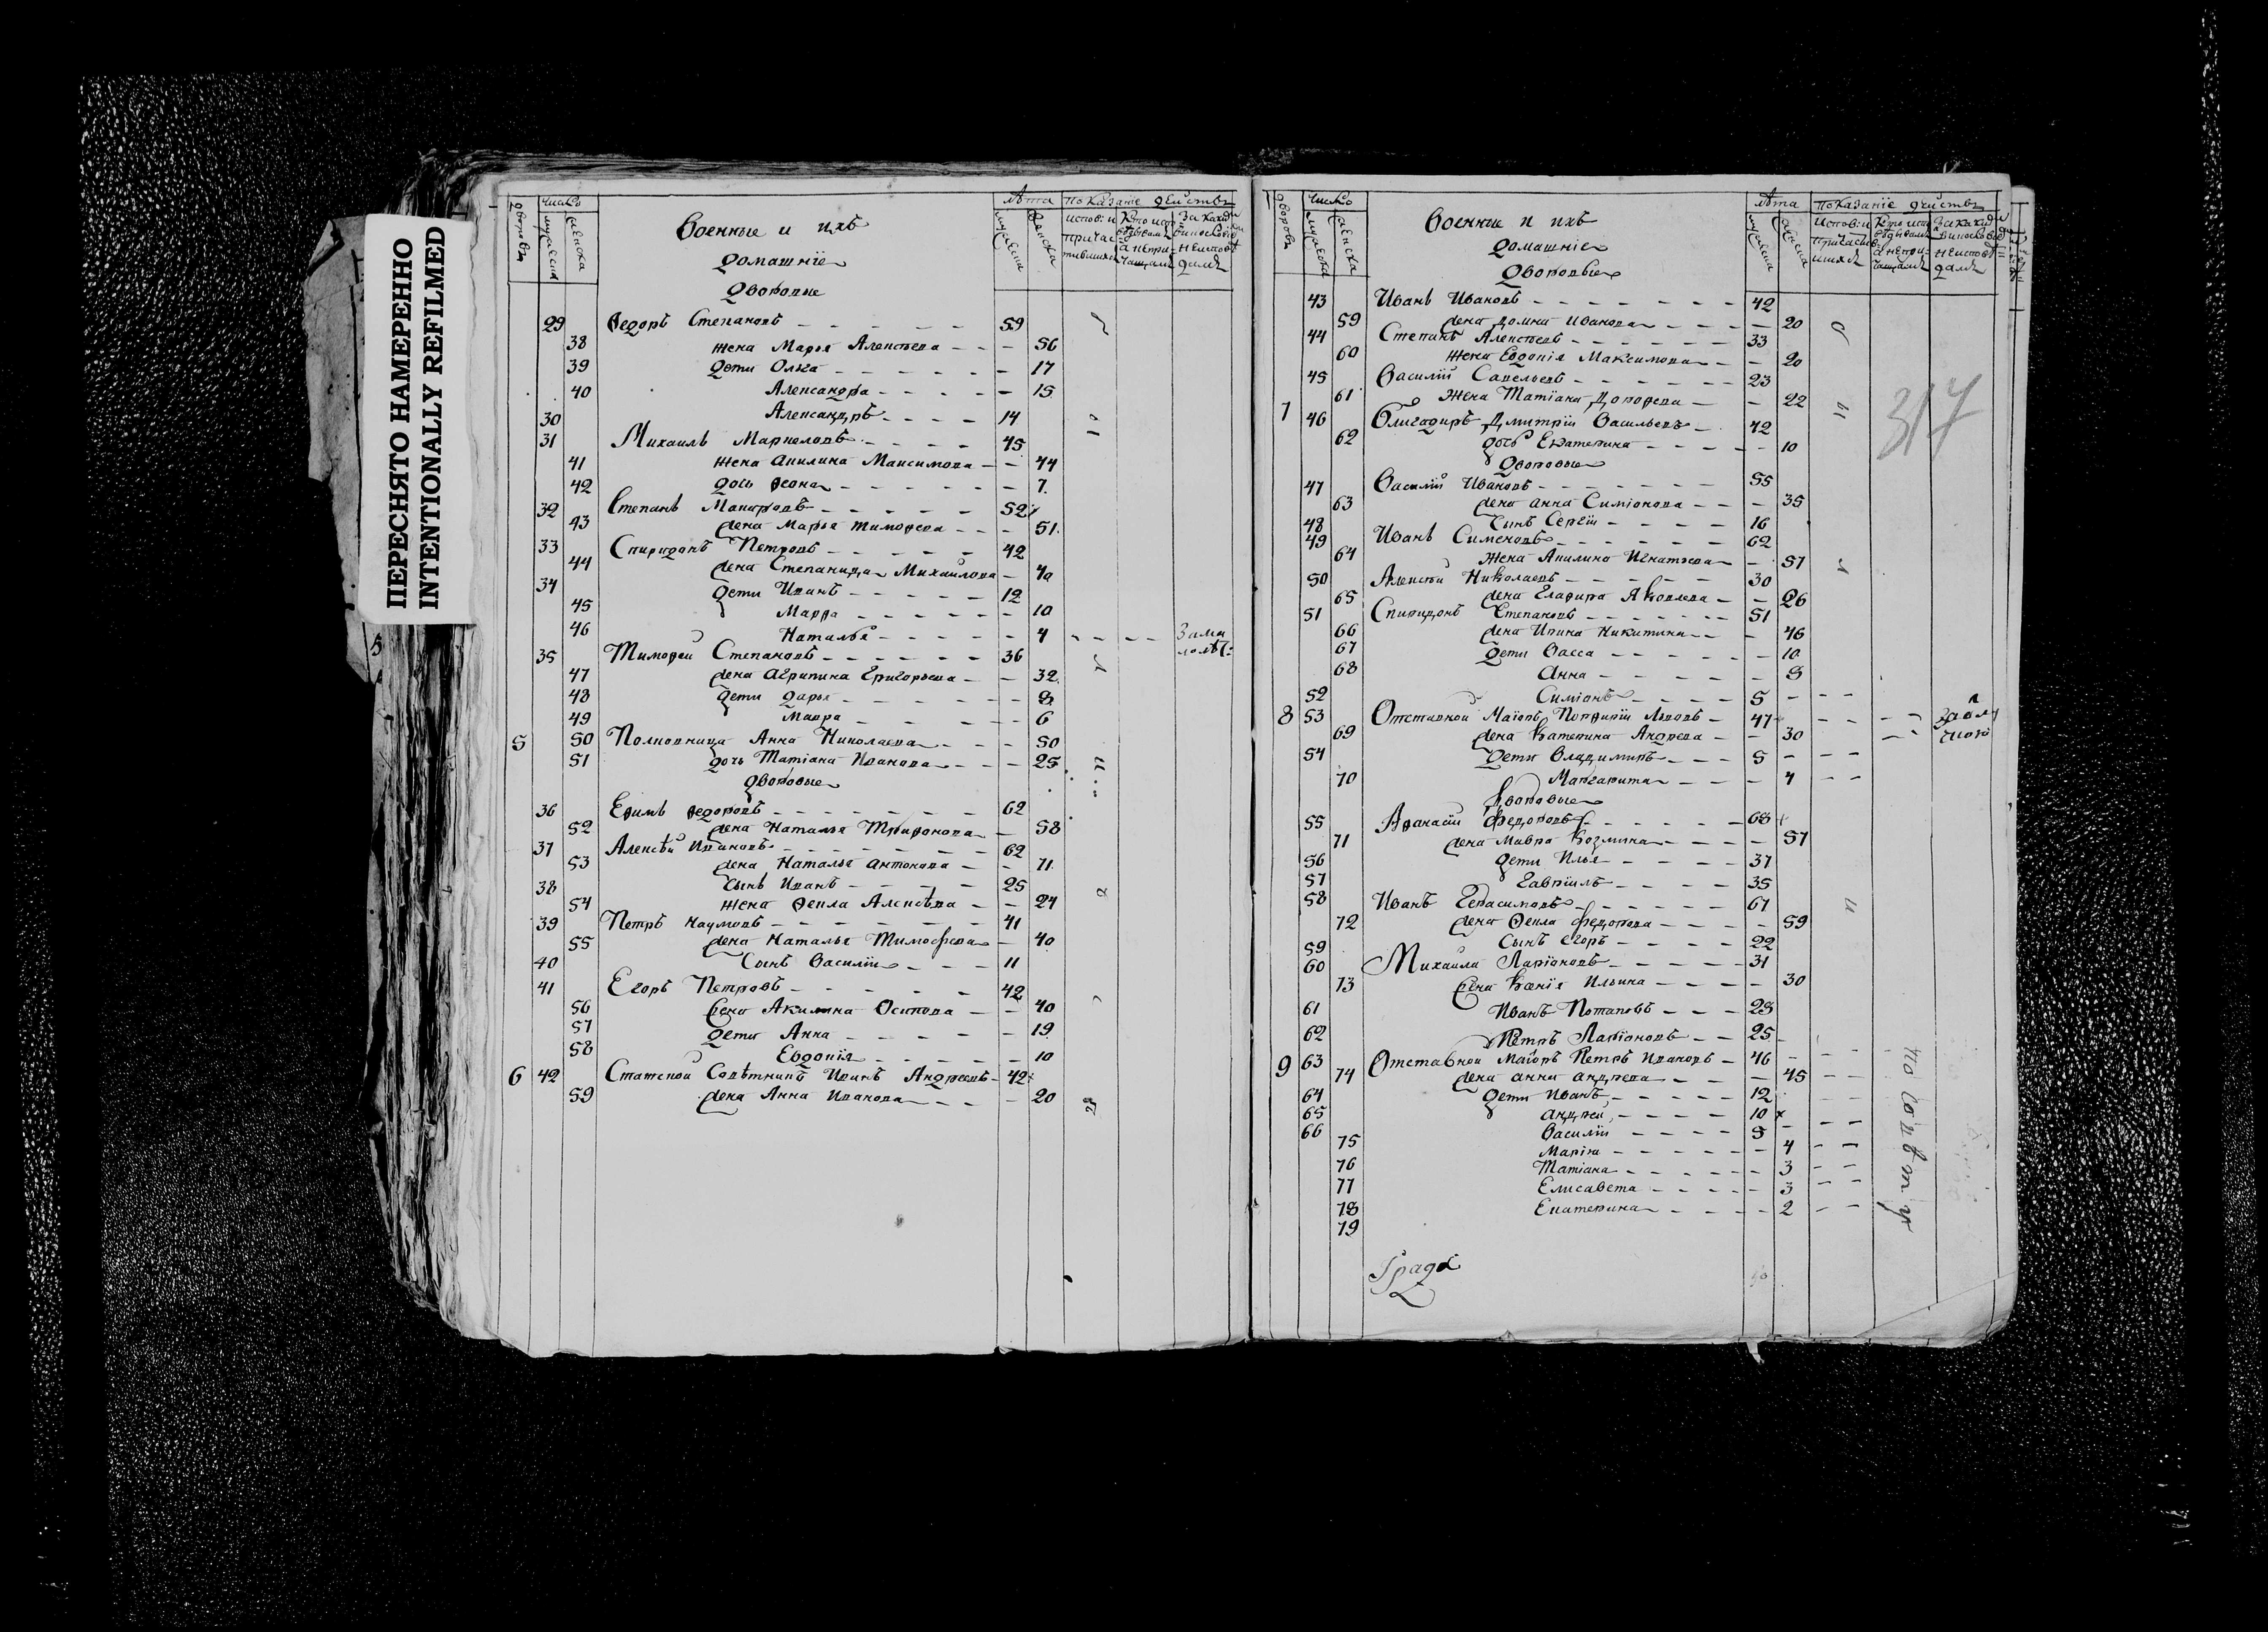 ПЕРЕСНЯТО НАМЕРЕННО
INTENTIONALLY REFILMED
дворовъ число лѣта показанїе дѣиствъ
мужеска женска Военные и ихъ мужеска женска
домашнїе
дворовые
29 Ѳедоръ Степановъ 59
38 жена Марья Алексѣева 56
39 дети Ольга 17
40 Александра 15
30 Александръ 14
31 Михаилъ 45
41 жена Акилина Максимова 44
42 дочь 7
32 Степанъ 52
43 жена Марья Тимоѳеева 51
33 Спиридонъ Петровъ 42
44 жена Степанида Михаилова 40
34 дети Иванъ 12
45 Марѳа 10
46 Наталья 4 за ма
лолѣт:
35 Тимоѳеи Степановъ 36
47 жена Агрипина Григорьева 32
48 дети Дарья 8
49 Мавра 6
5 50 Полковница Анна Николаева 50
51 дочь Татіана Иванова 25
дворовые
36 Еѳимъ Ѳедоровъ 62
52 жена Наталья Триѳонова 58
37 Алексѣй Ивановъ 62
53 жена Наталья Антонова 71
38 сынъ Иванъ 25
54 жена Ѳекла Алексѣева 24
39 Петръ Наумовъ 41
55 жена Наталья Тимофеева 40
40 Сынъ Василіи 11
41 Егоръ Петровъ 42
56 жена Акилина Осипова 40
57 дети Анна 19
58 Евдокїя 10
6 42 Статской Совѣтникъ Иванъ Андреевъ 42
59 жена Анна Иванова 20
дворовъ число лѣта показанїе дѣиствъ
мужеска женска Военные и ихъ мужеска женска
домашнїе
дворовые
317
43 Иванъ Ивановъ 42
59 жена Домна Иванова 20
44 Степанъ Алексѣевъ 33
60 жена Евдокія Максимова 20
45 Василїй Савельевъ 23
61 жена Татїана 22
7 46 Дмитрїи Васильевъ 42
62 дочь Екатерина 10
дворовые
47 Василїй Ивановъ 55
63 жена Анна Симїонова 35
48 Сынъ Сергїи 16
49 Иванъ Сименовъ 62
64 жена Акилина Игнатьева 57
50 Алексѣй Николаевъ 30
65 жена Глафира Яковлева 26
51 Спиридонъ Степановъ 51
66 жена Ирина Никитина 46
67 дети Васса 10
68 Анна 8
52 Симїонъ 5
8 53 Отставной Маїоръ Порѳирїи Львовъ 47
69 жена Катерина Андреева 30
54 дети Владимиръ 5
70 Маргарита 4
дворовые
55 Аѳанасїи Федоровъ 68
71 жена Мавра Козмина 57
56 дети Илья 37
57 Гаврїилъ 35
58 Иванъ Герасимовъ 61
72 жена Ѳекла Федорова 59
59 Сынъ Егоръ 22
60 Михаила Ларїоновъ 31
73 жена Ксенїя Ильина 30
61 Иванъ Потаповъ 28
62 Петръ Ларїоновъ 25
9 63 Отставной Маїоръ Петръ Ивановъ 46
74 жена Анна Андреева 45
64 дети Иванъ 12
65 Андреи 10
66 Василїи 8
75 Марїа 4
76 Татїана 3
77 Елисавета 3
78 Екатерина 2
79
Града